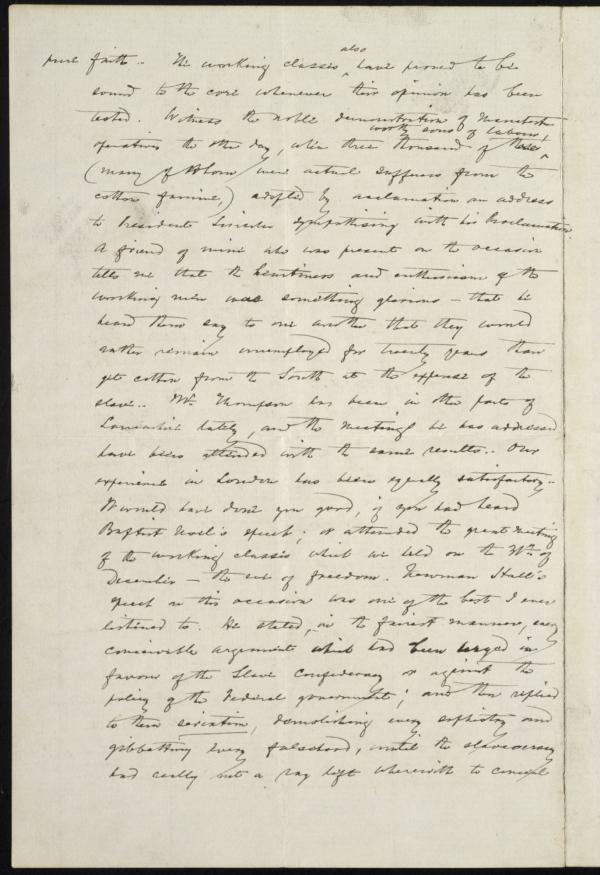 pure faith.. The working classes also have proved to be
sound to the core whenever their opinion has been
tested. Witness the noble demonstration of Manchester
operatives the other day, when three thousand of these worthy sons of labour,
(many of whom were actual sufferers from the
cotton famine,) adopted by acclamation an address
to President Lincoln sympathising with his Proclamation.
A friend of mine who was present on the occasion
tells me that the heartiness and enthusiasm of the
working men was something glorious – that he
heard them say to one another that they would
rather remain unemployed for twenty years than
get cotton from the South at the expense of the
slave.. Mr. Thompson has been in other parts of
Lancashire lately, and the meetings he has addressed
have been attended with the same results.. Our
experience in London has been equally satisfactory..
It would have done you good, if you had heard
Baptist Noel's speech; or attended the great meeting
of the working classes which we held on the 31st of
December – the eve of freedom. Newman Hall's
speech on this occasion was one of the best I ever
listened to. He stated, in the fairest manner, every
conceivable argument which had been urged in
favour of the Slave Confederacy or against the
policy of the Federal government; and then replied
to them seriatim, demolishing every sophistry and
gibbetting every falsehood, until the slaveocracy
had really not a rag left wherewith to conceal